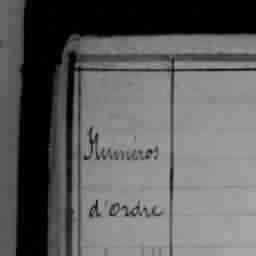 Numéros
d'Ordre